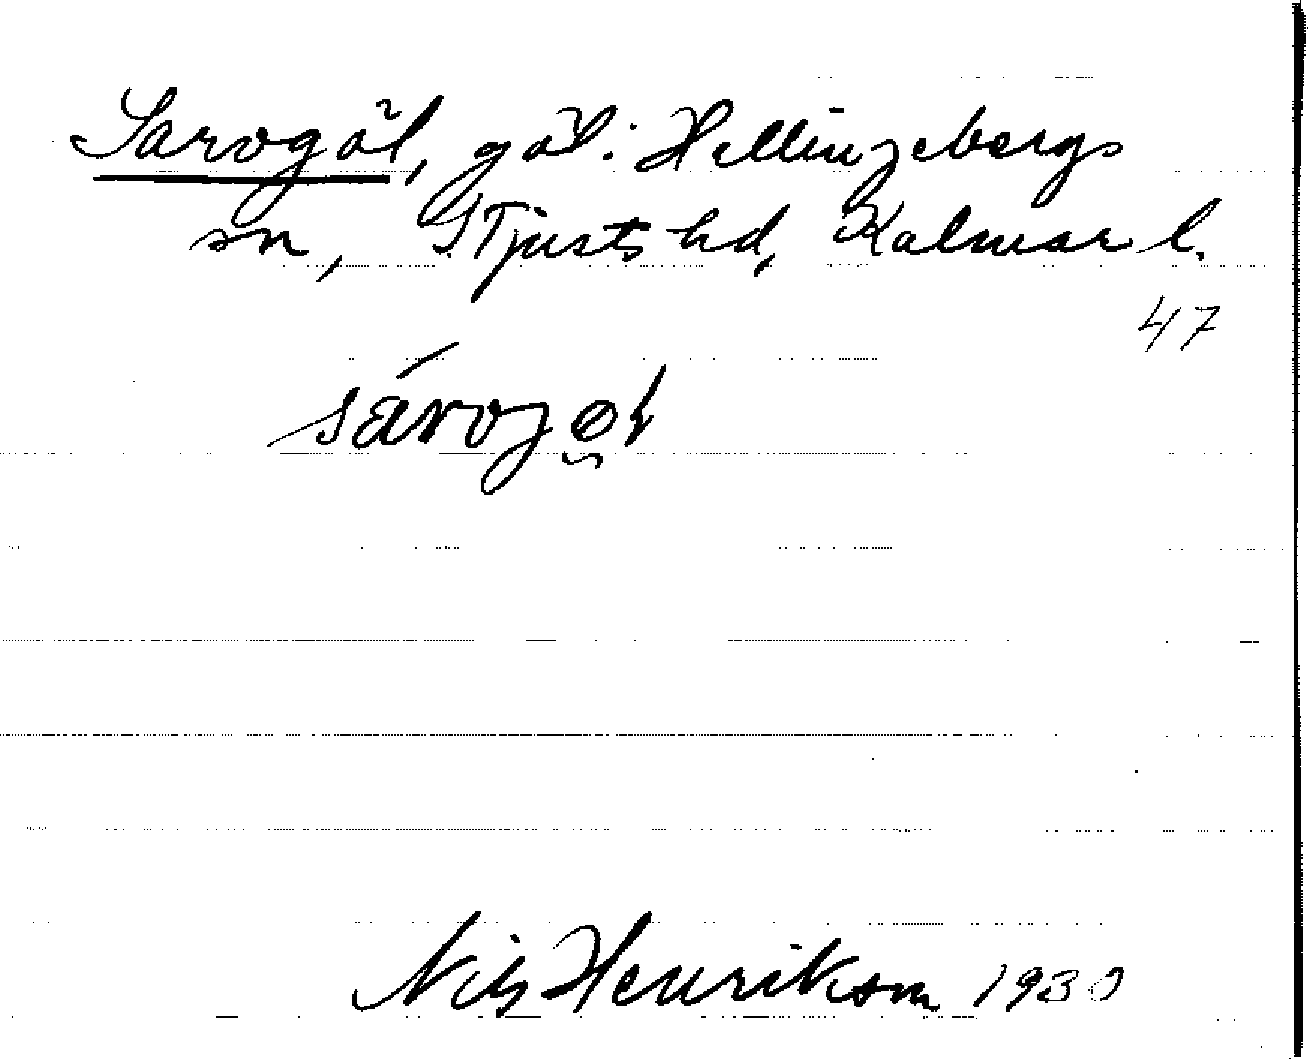 Sarvgöl, göl: Hallingebergs
sn, S Tjusts hd, Kalmar l.
47
Nils Henrikson 1930